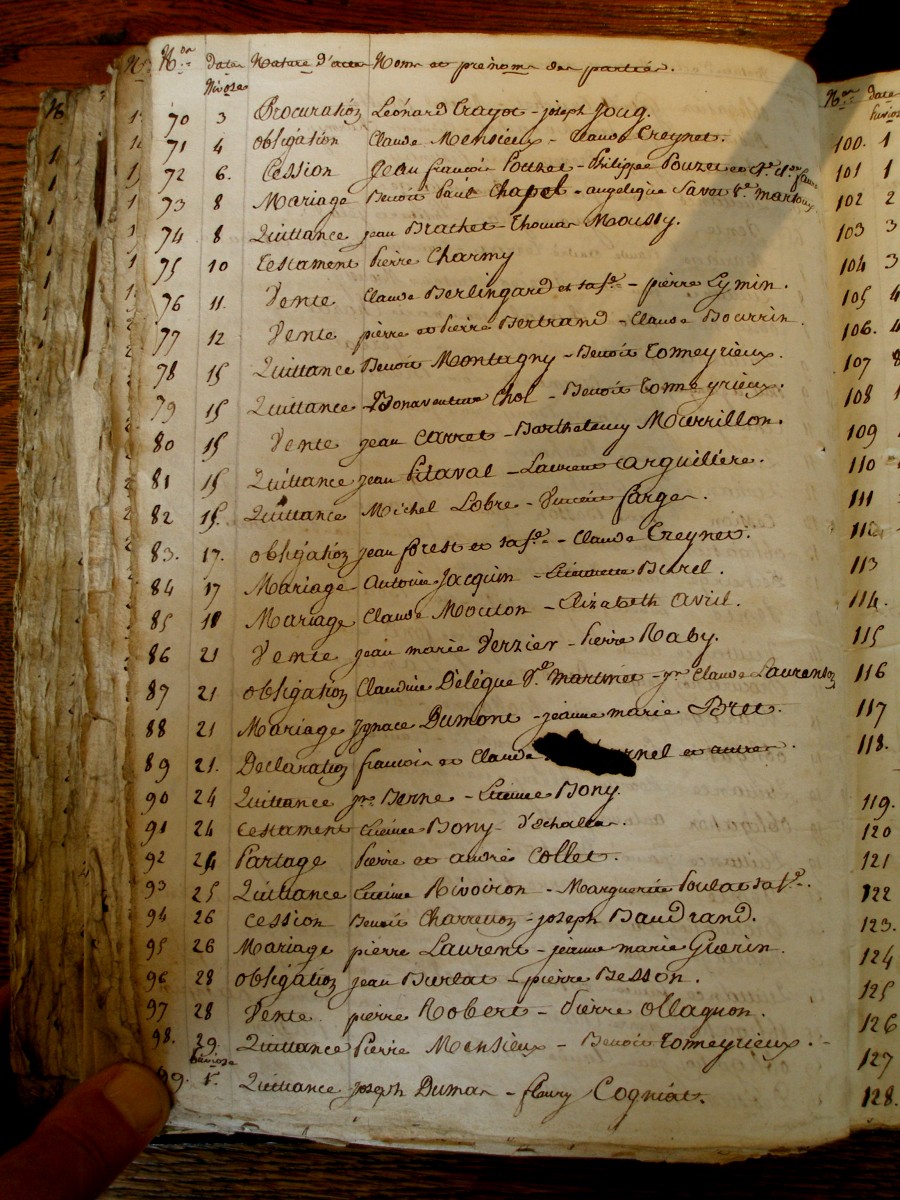 Nos date Nature d'actes Noms et prénoms des parties.
Nivose
70 3 Procuration Léonard Crayot - joseph Joug.
71 4 obligation Claude Mensieux - Claude Creynet.
72 6. Cession Jean francois Pouzet - Philippe Pouzet et
73 8 Mariage Benoit Paul Chapel - angelique Savoi Ve. Martoux
74 8 Quittance jean Brachet - Thomas Moussy.
75 10 Testament Pierre Charmy
76 11. Vente Claude Berlingard et sa fe. - pierre Lymin.
77 12 Vente pierre et Pierre Bertrand - Claude Bourrin.
78 15 Quittance Benoit Montagny - Benoit Tomeyrieux.
79 15 Quittance Bonaventure Chol - Benoit Tomeyrieux.
80 15 Vente jean Carret - Barthelemy Mourrillon.
81 15 Quittance jean Pitaval - Laurent arguilière.
82 15. Quittance Michel Lobre - Vincent farge.
83. 17. obligation jean forest et sa fe. - Claude Creynet.
84 17 Mariage Antoine Jacquin - Etiennette Burel.
85 18 Mariage Claude Mouton - Elizabeth Avril.
86 21 Vente jean marie Verzier - Pierre Raby.
87 21 obligation Claudine Delègue Ve. Martinet - jn. Claude Laurenson
88 21 Mariage Ignace Dumont - jeanne marie Bret.
89 21. Declaration francois et Claude et autres.
90 24 Quittance jn. Berne - Etienne Bony.
91 24 testament Etienne Bony d'Echallas.
92 24 Partage Pierre et andré Collet.
93 25 Quittance Etienne Rivoiron - Marguerite Poulat sa fe.
94 26 Cession Benoit Charreton - joseph Baudrand.
95 26 Mariage pierre Laurent - jeanne marie Guerin.
96 28 obligation jean Burlat - pierre Besson.
97 28 Vente. pierre Robert - Pierre ollagnon.
98. 29. Quittance Pierre Mensieux - Benoit Tomeyrieux.
pluviose
99. 1er. Quittance joseph Dumas - fleury Cogniat.
Nos date
100. 1
101 1
102 2
103 3
104 3
105 4
106. 4
107 8
108 1
109
110
111
112
113
114.
115
116
117
118.
119.
120
121
122
123.
124
125
126
127
128.